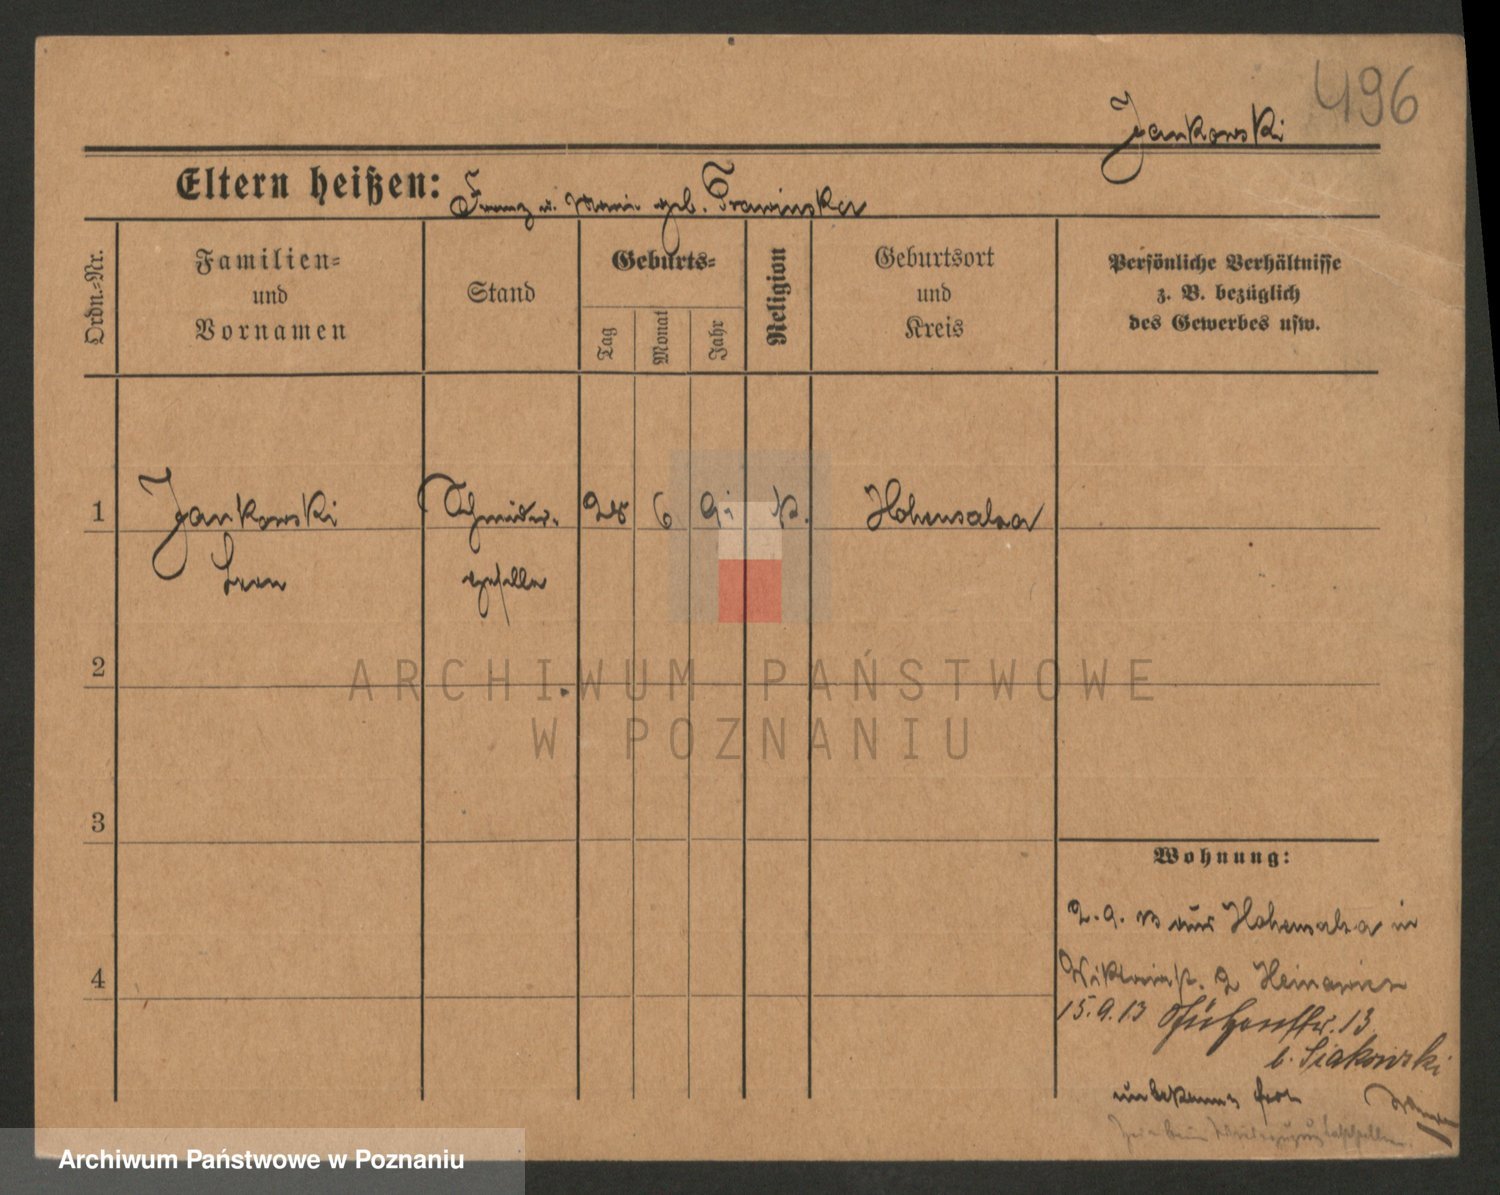 496
Jankowski
Eltern heißen: Franz u. Marie geb. Trawinska
Ordn.-Nr.
Familien-
und
Vornamen
Stand
Geburts-
Tag
Monat
Jahr
Religion
Geburtsort
und
Kreis
Persönliche Verhältnisse
z. B. bezüglich
des Gewerbes usw.
1 Jankowski Schneider- 28 6 91 k. Hohensalza
Leon geselle
2
ARCHIWUM PAŃSTWOWE
W POZNANIU
3
Wohnung:
2.9.13 aus Hohensalza in
4
Viktoriastr. 2
15.9.13 Schützenstr. 13
b. Siakowski
unbekannt fort
Archiwum Państwowe w Poznaniu